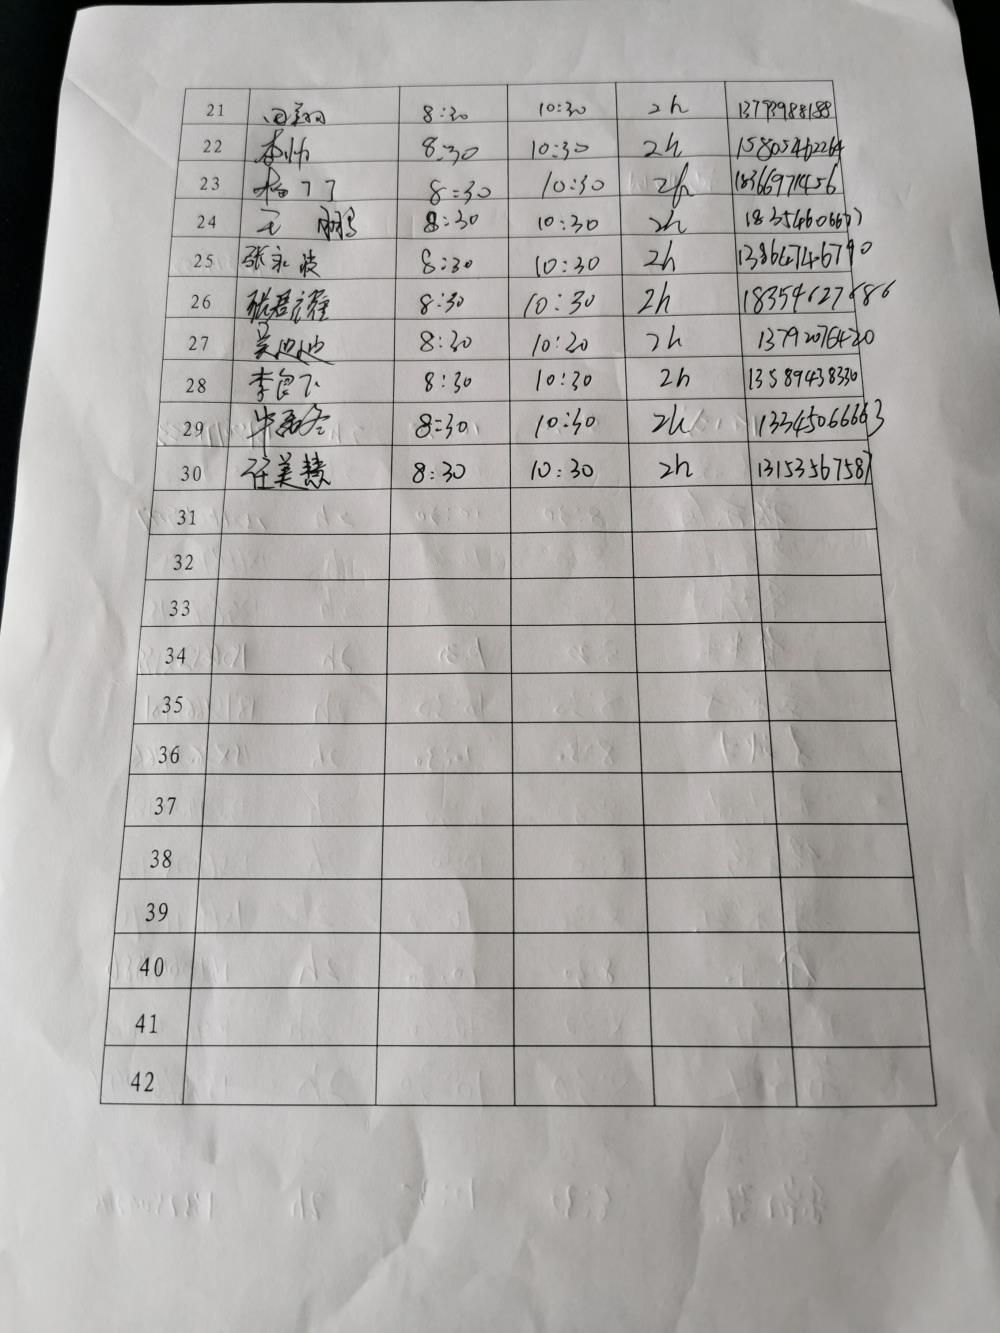 21 田翔 8:30 10:30 2h
22 李帅 8:30 10:30 2h 15805462264
23 杨丁丁 8:30 10:30 2h 18366971456
24 王鹏 8:30 10:30 2h
25 张永波 8:30 10:30 2h 13864746790
26 8:30 10:30 2h 18354627686
27 吴迪迪 8:30 10:30 2h 13792076420
28 8:30 10:30 2h 13589438330
29 8:30 10:30 2h 13345066663
30 任美慧 8:30 10:30 2h 13153567587
31
32
33
34
35
36
37
38
39
40
41
42